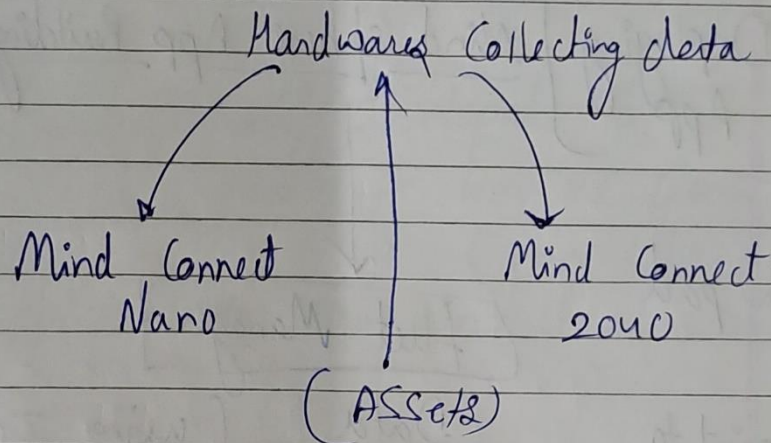 Hardwares Collecting data
Mind Connect
Nano
Mind Connect
2040
(Assets)